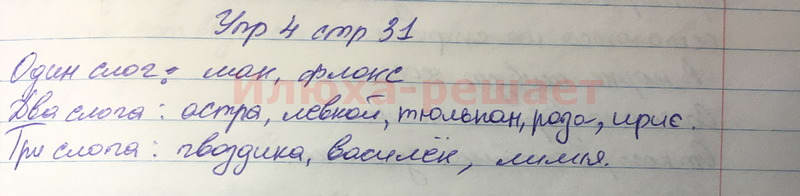 Упр 4 стр 31
Один слог: мак, флокс
Илюха-решает
Два слога: астра, левкой, тюльпан, роза, ирис.
Три слога: гвоздика, василёк, лилия.